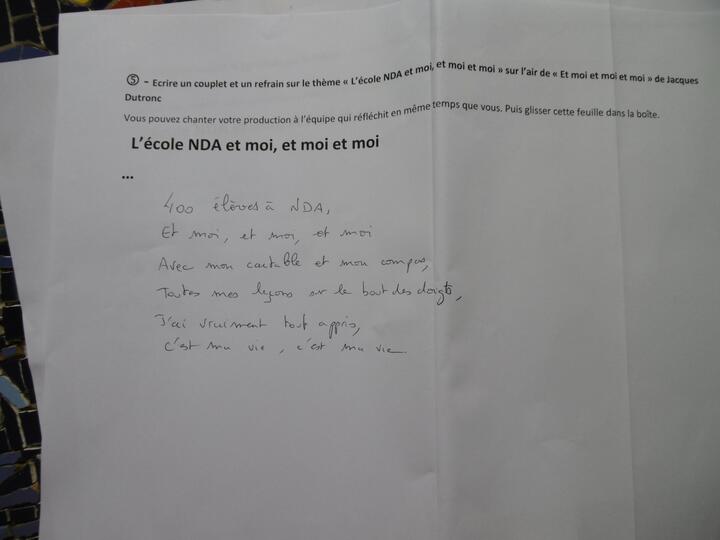 ⑤ - Ecrire un couplet et un refrain sur le thème « L'école NDA et moi, et moi et moi » sur l'air de « Et moi et moi et moi » de Jacques
Dutronc
Vous pouvez chanter votre production à l'équipe qui réfléchit en même temps que vous. Puis glisser cette feuille dans la boîte.
L'école NDA et moi, et moi et moi
...
400 élèves à NDA,
Et moi, et moi, et moi
Avec mon cartable et mon compas,
Toutes mes leçons sur le bout des doigts,
J'ai vraiment tout appris,
C'est ma vie, c'est ma vie